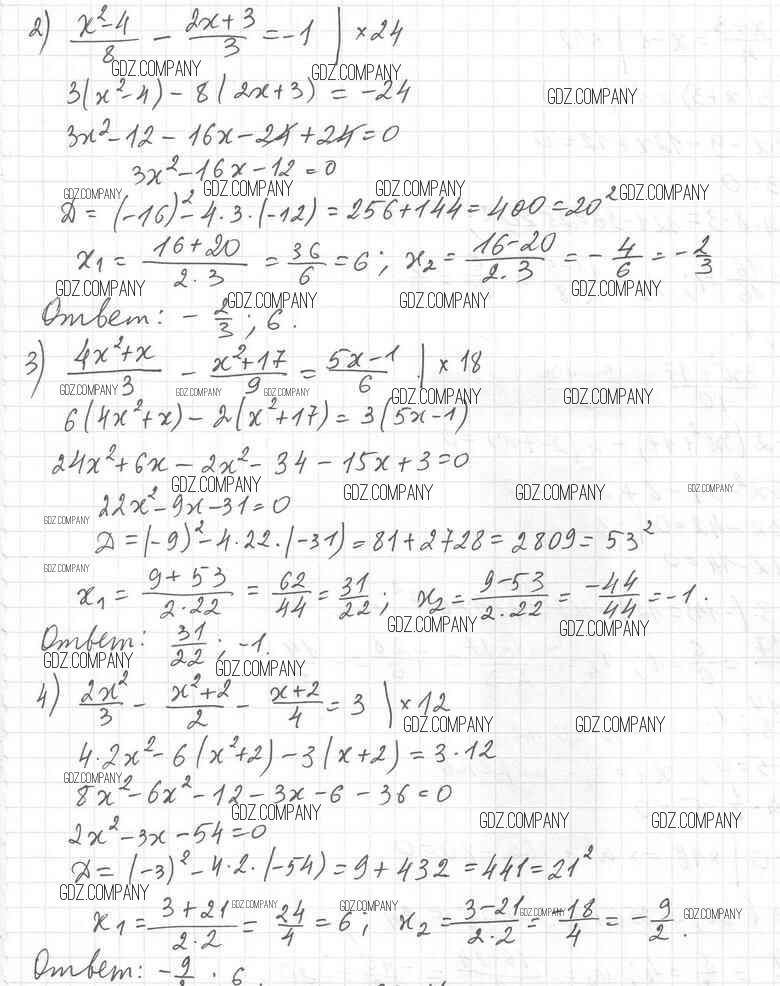 2) (x²-4)/8 - (2x+3)/3 = -1 | ×24
GDZ.COMPANY GDZ.COMPANY
3(x²-4) - 8(2x+3) = -24
GDZ.COMPANY
3x²-12-16x-24+24=0
3x²-16x-12=0
GDZ.COMPANY GDZ.COMPANY GDZ.COMPANY GDZ.COMPANY
Д = (-16)²-4·3·(-12) = 256+144 = 400 = 20²
x₁ = (16+20)/(2·3) = 36/6 = 6; x₂ = (16-20)/(2·3) = -4/6 = -2/3
GDZ.COMPANY GDZ.COMPANY GDZ.COMPANY GDZ.COMPANY
Ответ: -2/3; 6.
3) (4x²+x)/3 - (x²+17)/9 = (5x-1)/6 | ×18
GDZ.COMPANY GDZ.COMPANY GDZ.COMPANY GDZ.COMPANY GDZ.COMPANY
6(4x²+x) - 2(x²+17) = 3(5x-1)
24x²+6x-2x²-34-15x+3=0
GDZ.COMPANY GDZ.COMPANY GDZ.COMPANY GDZ.COMPANY
22x²-9x-31=0
GDZ.COMPANY
Д = (-9)²-4·22·(-31) = 81+2728 = 2809 = 53²
GDZ.COMPANY
x₁ = (9+53)/(2·22) = 62/44 = 31/22; x₂ = (9-53)/(2·22) = -44/44 = -1.
GDZ.COMPANY GDZ.COMPANY
Ответ: 31/22; -1.
GDZ.COMPANY GDZ.COMPANY
4) 2x²/3 - (x²+2)/2 - (x+2)/4 = 3 | ×12
GDZ.COMPANY GDZ.COMPANY
4·2x²-6(x²+2)-3(x+2) = 3·12
GDZ.COMPANY
8x²-6x²-12-3x-6-36=0
GDZ.COMPANY GDZ.COMPANY GDZ.COMPANY
2x²-3x-54=0
Д = (-3)²-4·2·(-54) = 9+432 = 441 = 21²
GDZ.COMPANY
x₁ = (3+21)/(2·2) = 24/4 = 6; x₂ = (3-21)/(2·2) = -18/4 = -9/2.
GDZ.COMPANY GDZ.COMPANY GDZ.COMPANY GDZ.COMPANY
Ответ: -9/2; 6.